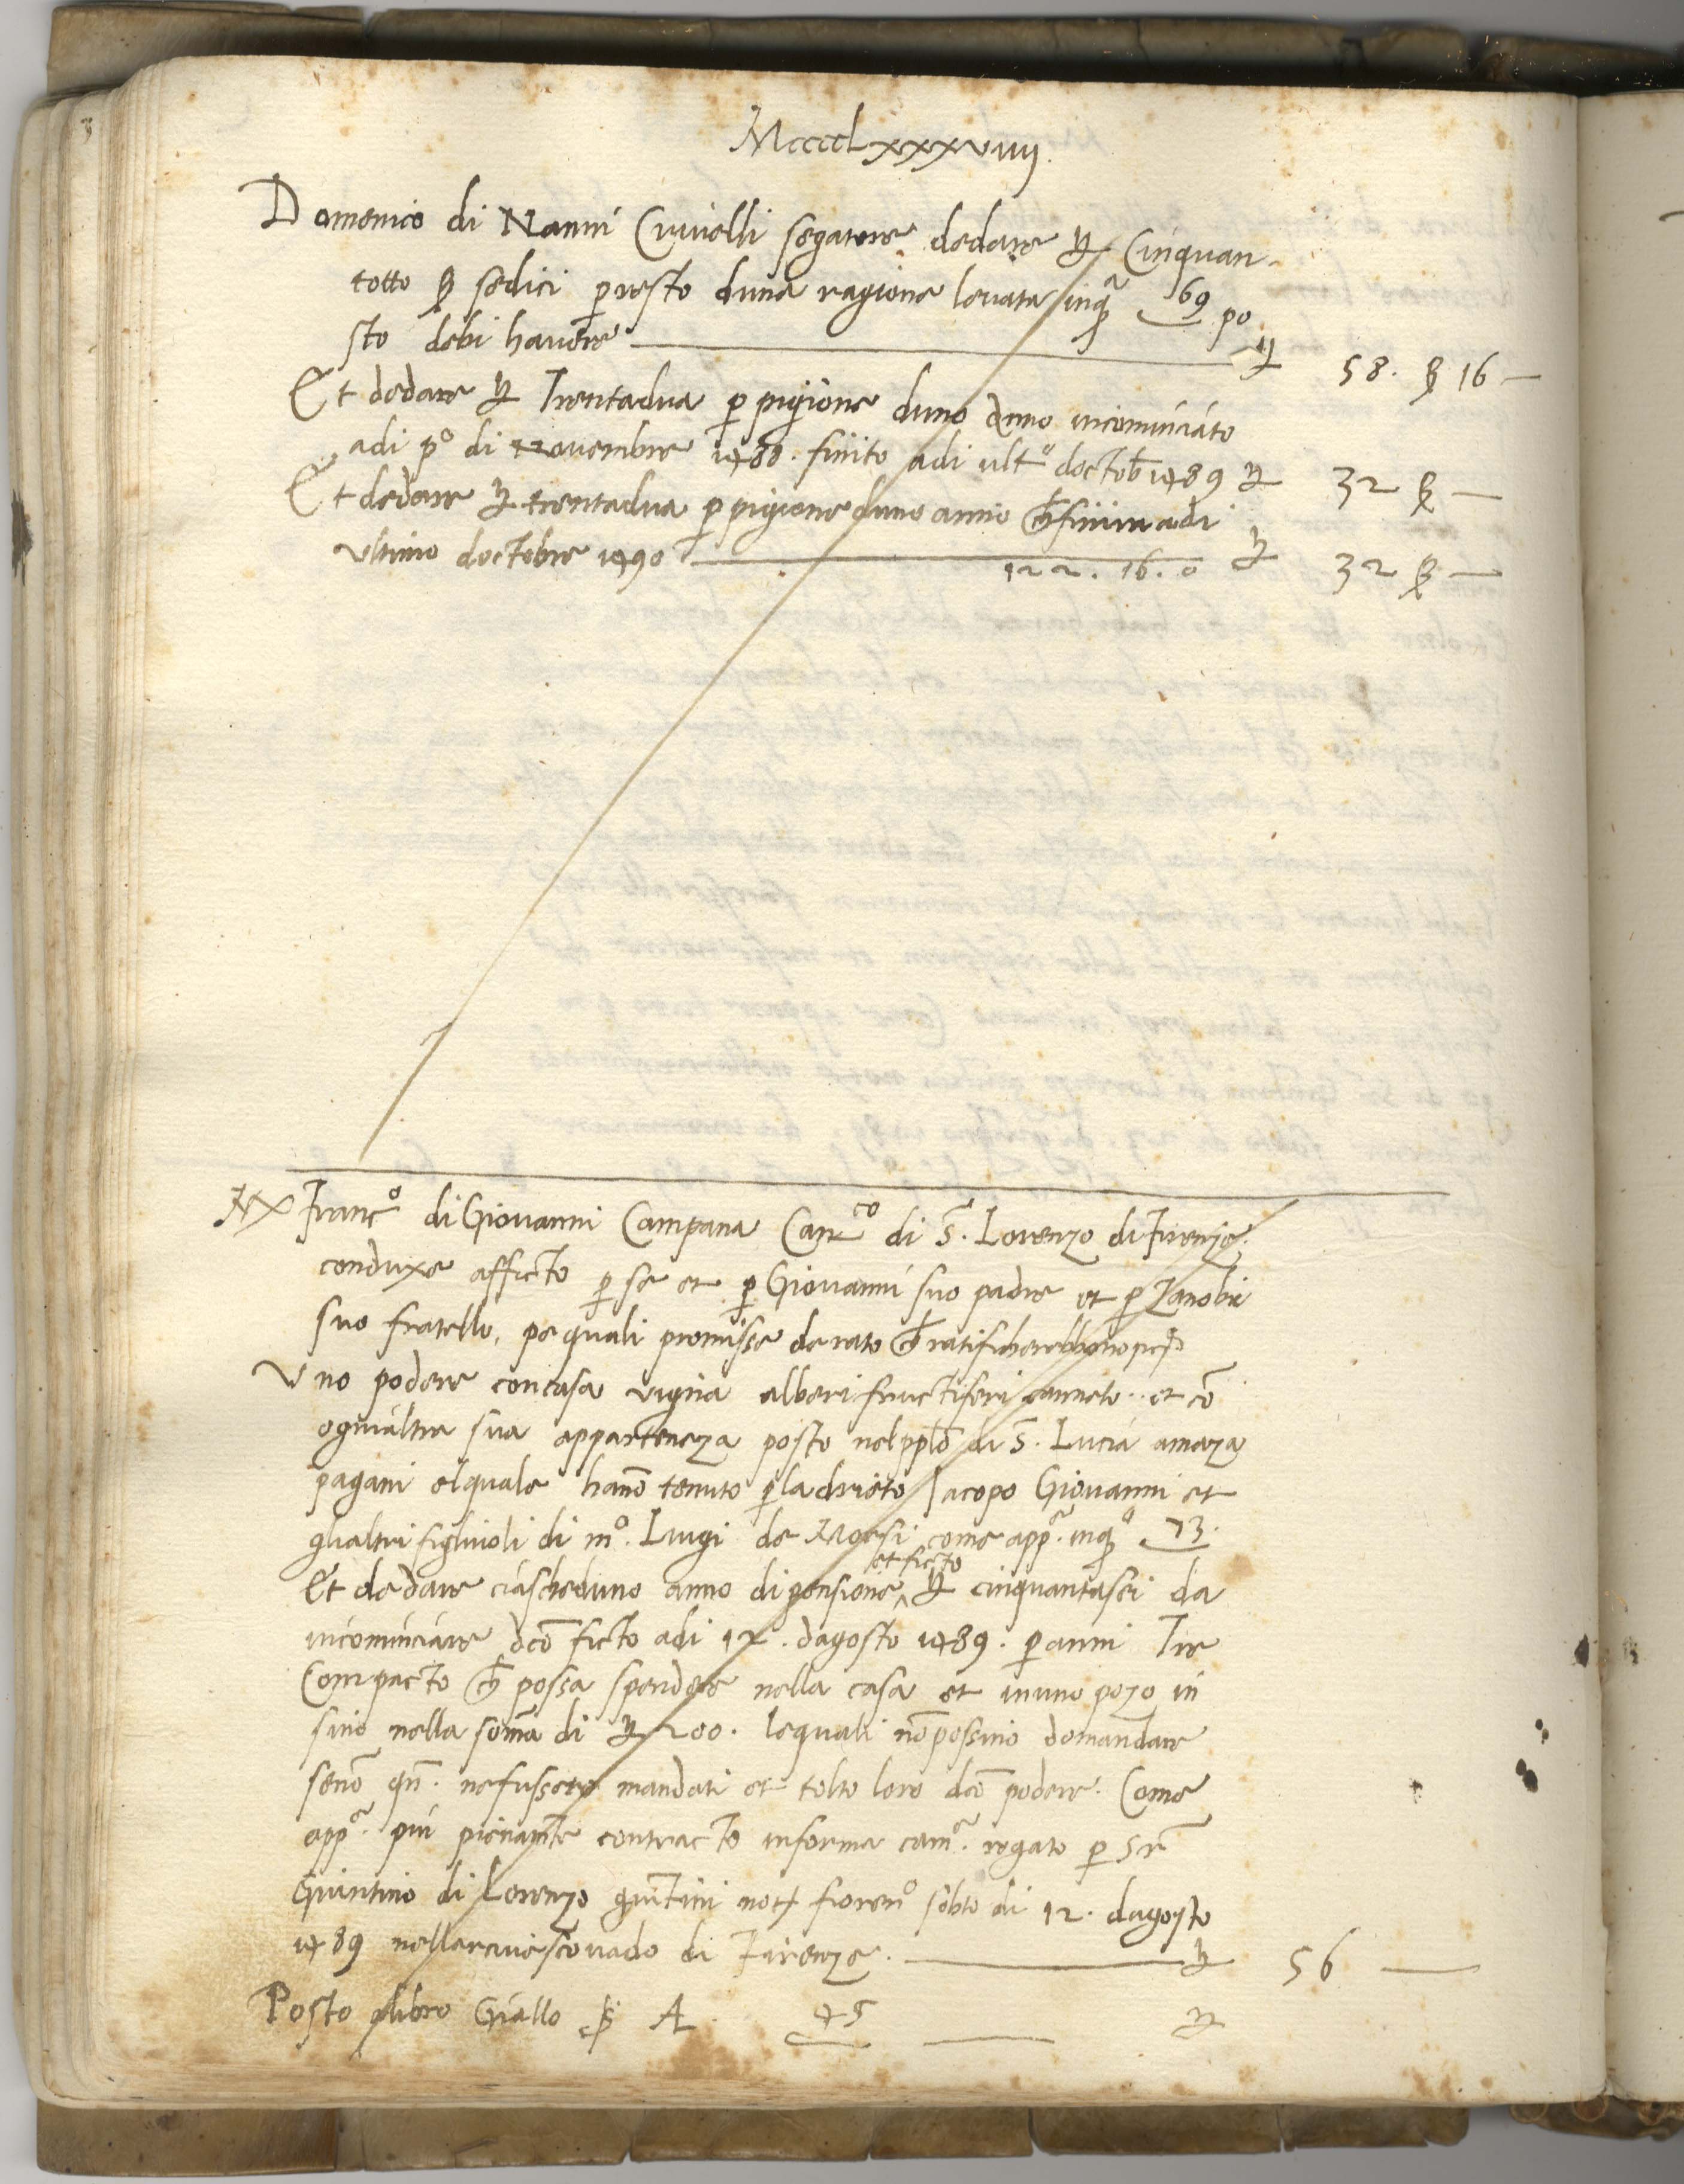 Mcccclxxxviiij.
Domenico di Nanni Civivelli segatore dedare ł Cinquan-
totto ß sedici p resto duna ragione levata inq͞ 69 po
sto debi havere ł 58. ß 16 —
Et dedare ł Trentadua p pigione duno anno incominciato
adi pº di Novembre 1488. finito adi ultº doctob̄ 1489 ł 32 ß —
Et dedare ł trentadua p pigione duno anno ch̄ finira adi
ultimo doctobre 1490 122. 16. 0 ł 32 ß —
Francº di Giovanni Campana Canco di S. Lorenzo di Firenze.
conduxe afficto p se et p Giovanni suo padre et p Zanobi
suo fratello, pe quali promisse de rato ch̄ ratificherebbono
Uno podere con casa vigna alberi fructiferi canneto. et cō
ognialtra sua apparteneza posto nel pplō di S. Lucia amaza
pagani elquale hanō tenuto p ladrieto Jacopo Giovanni et
glialtri figluioli di mº. Luigi de Morsi come appª. inqº 73.
Et dedare ciascheduno anno di pensione ^ et ficto ł cinquantasei da
incominciare dcō ficto adi 12. dagosto 1489. p anni Tre
Compacto ch̄ possa spendere nella casa et in uno pozo in
sino nella somā di ł 200. lequali nō possino domandare
senō qn̄. ne fussero mandati et tolto loro dcō podere. Come
appª. piu pienamte contracto in forma camª. rogato p Sr̄
Quintino di Lorenzo guintini not fiorenº sobto di 12. dagosto
1489 nellarcivescovado di Firenze. ł 56 —
Posto alibro Giallo A 45 ł